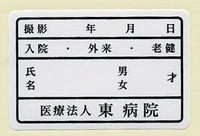 撮影 年 月 日
入院・外来・老健
氏名 男女 才
医療法人 東病院